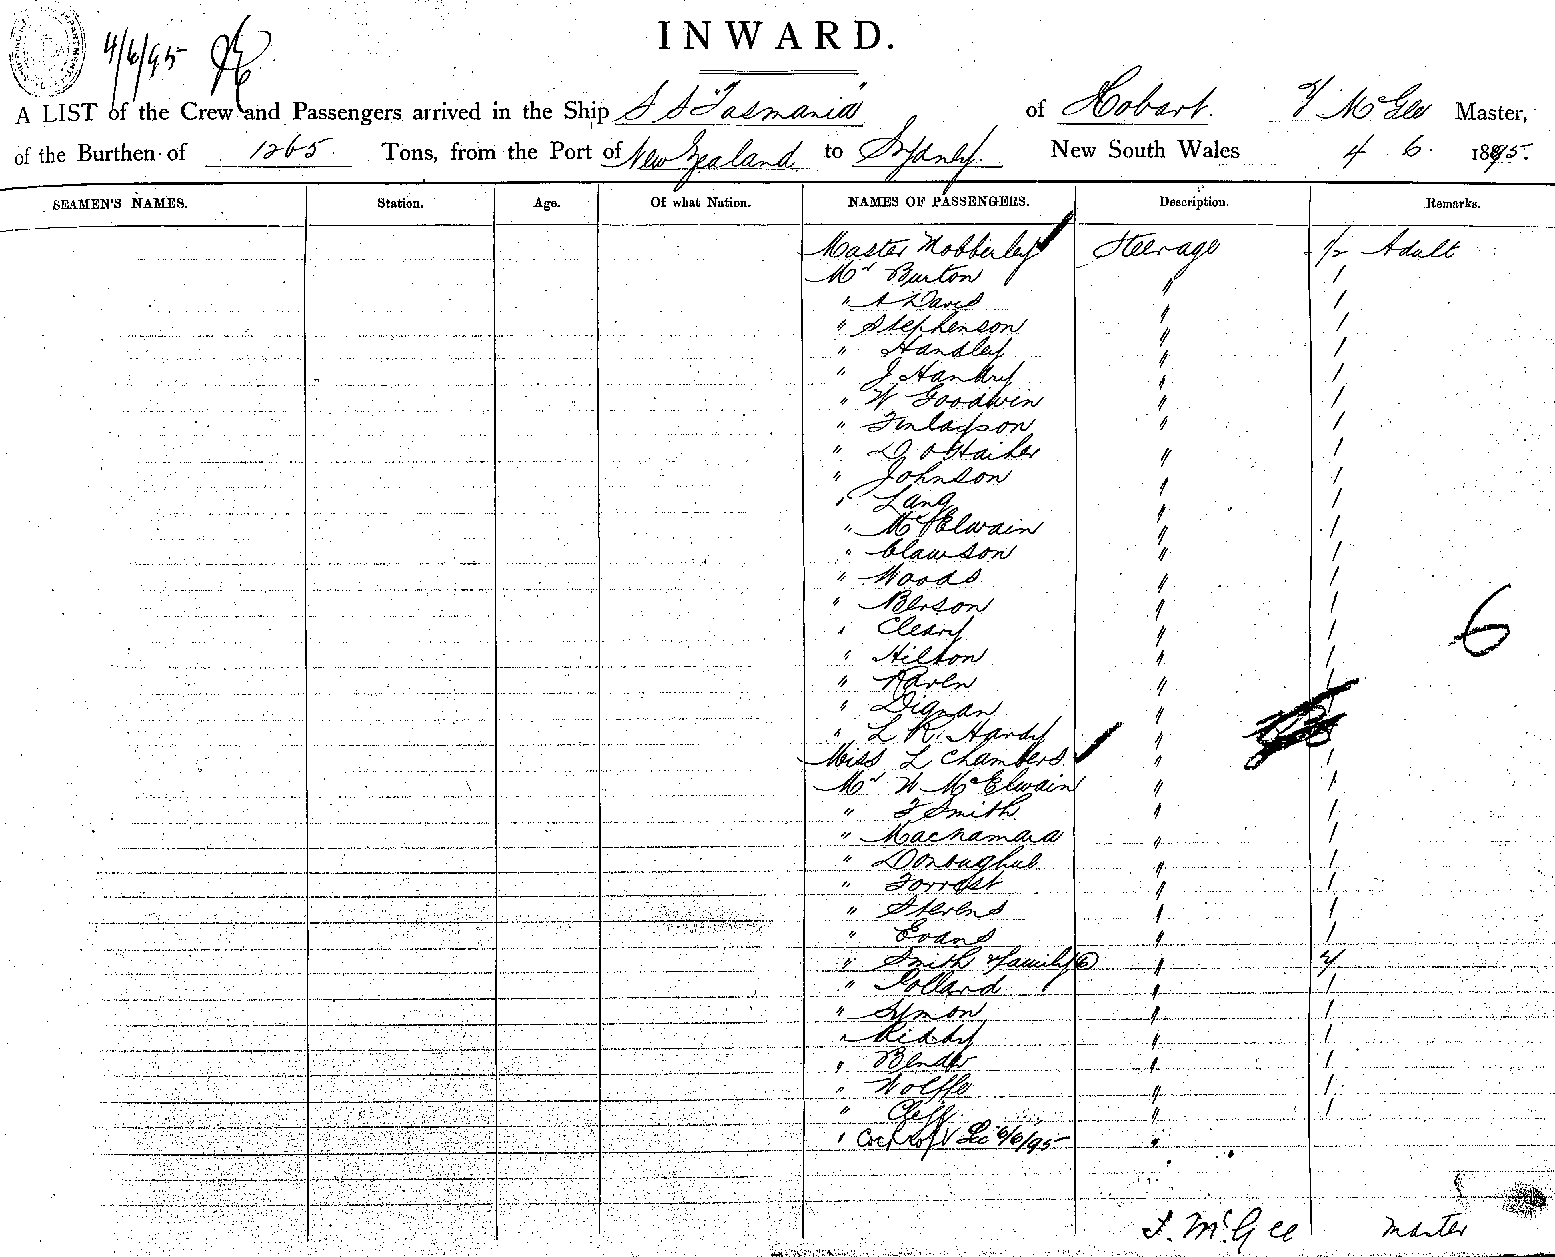 4/6/95
INWARD.
A LIST of the Crew and Passengers arrived in the Ship S S "Tasmania" of Hobart. T McGee Master,
of the Burthen of 1265 Tons, from the Port of New Zealand to Sydney. New South Wales 4 6. 1895.
SEAMEN'S NAMES. Station. Age. Of what Nation. NAMES OF PASSENGERS. Description. Remarks.
Master Mobberley Steerage 1/2 Adult
Mr Burton " 1
" A Davis " 1
" Stephenson " 1
" Handley " 1
" J Handry " 1
" W Goodwin " 1
" Finlayson " 1
" D " 1
" Johnson " 1
" Lang " 1
" McElwain " 1
" Clawson " 1
" Woods " 1
" Berson " 1
" Cleary " 1
" Hilton " 1
" Raven " 1
" Dignan " 1
" L R. Hardy " 1
Miss L Chambers " 1
Mr W McElwain " 1
" F Smith " 1
" Macnamara " 1
" Donoughue " 1
" Forrest " 1
" Stevens " 1
" Evans " 1
" Smith & family 6 " 4
" Pollard " 1
" Symon " 1
" Kiddy " 1
" Bender " 1
" Wolffe " 1
" Cliff " 1
" 6/6/95 "
6
T. McGee Master